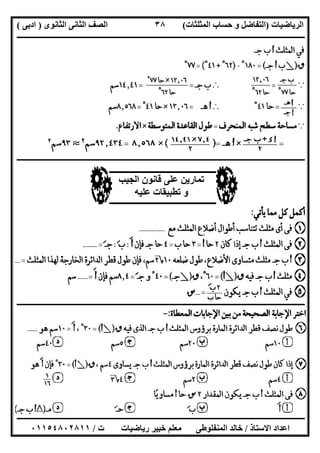 الرياضيات (التفاضل و حساب المثلثات) ٣٨ الصف الثانى الثانوى ( ادبى )
فى المثلث أ ب جـ
ق(ب أ جـ) = ١٨٠° - (٦٢° + ٤١°) = ٧٧°
∵ ب جـ / حا ٧٧° = ١٣,٠٦ / حا ٦٢° ∴ ب جـ = ١٣,٠٦ × حا ٧٧° / حا ٦٢° = ١٤,٤١ سم
∵ أ هـ / أ جـ = حا ٤١° ∴ أ هـ = ١٣,٠٦ × حا ٤١° = ٨,٥٦٨ سم
∵ مساحة سطح شبه المنحرف = طول القاعدة المتوسطة × الارتفاع.
= أ ء + ب جـ / ٢ × أ هـ = ( ٧,٤ + ١٤,٤١ / ٢ ) × ٨,٥٦٨ = ٩٣,٤٣٤ سم٢ ≃ ٩٣ سم٢
تمارين على قانون الجيب
و تطبيقات عليه
أكمل كل مما يأتي:
١ فى أى مثلث تتناسب أطوال أضلاع المثلث مع ................
٢ فى المثلث أ ب جـ إذا كان ٢ حا أ = ٣ حا ب = ٤ حا جـ فإن أَ : بَ : جـَ = .........
٣ أ ب جـ مثلث متساوى الأضلاع، طول ضلعه ١٠√٣ سم، فإن طول قطر الدائرة الخارجة لهذا المثلث = ...
٤ مثلث أ ب جـ فيه ق(أ) = ٦٠°، ق(جـ) = ٤٠° و جـَ = ٨,٤ سم فإن أَ = ........ سم
٥ فى المثلث أ ب جـ يكون ٢بَ / حا ب = ... س
اختر الإجابة الصحيحة من بين الإجابات المعطاة:-
٦ طول نصف قطر الدائرة المارة برؤوس المثلث أ ب جـ الذى فيه ق(أ) = ٣٠°، أَ = ١٠ سم هو ......
أ ١٠ سم ب ٢٠ سم جـ ٥ سم د ٤٠ سم
٧ إذا كان طول نصف قطر الدائرة المارة برؤوس المثلث أ ب جـ يساوى ٤ سم، ق(أ) = ٣٠° فإن أَ هو
أ ٤ سم ب ٢ سم جـ ٤√٣ د ١/١٦
٨ فى المثلث أ ب جـ يكون المقدار ٢ س حا أ مساويًا
أ أَ ب بَ جـ جـَ د مـ(△ أ ب جـ)
اعداد الاستاذ / خالد المنفلوطى معلم خبير رياضيات ت / ٠١١٥٤٨٠٢٨١١